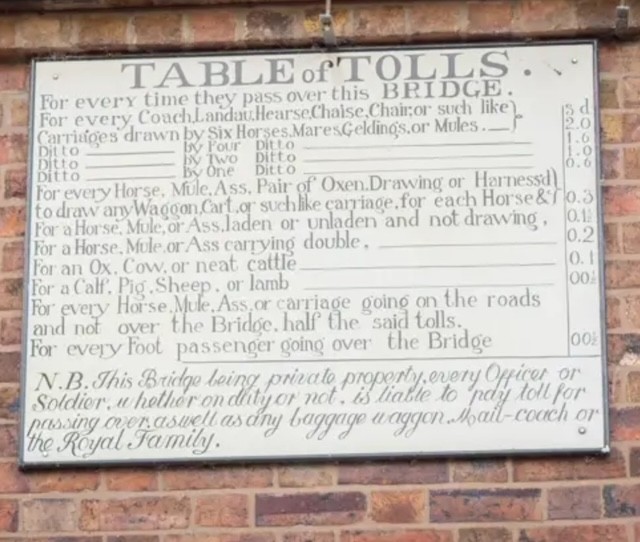 TABLE of TOLLS.
For every time they pass over this BRIDGE.
For every Coach, Landau, Hearse, Chaise, Chair, or such like } s d
Carriages drawn by Six Horses, Mares, Geldings, or Mules. — 2.0
Ditto by Four Ditto 1.6
Ditto by Two Ditto 1.0
Ditto by One Ditto 0.6
For every Horse, Mule, Ass, Pair of Oxen, Drawing or Harness'd }
to draw any Waggon, Cart, or such like carriage, for each Horse &c 0.3
For a Horse, Mule, or Ass, laden or unladen and not drawing, 0.1½
For a Horse, Mule, or Ass carrying double, 0.2
For an Ox, Cow, or neat cattle 0.1
For a Calf, Pig, Sheep, or lamb 00½
For every Horse, Mule, Ass, or carriage going on the roads
and not over the Bridge, half the said tolls.
For every Foot passenger going over the Bridge 00½
N.B. This Bridge being private property, every Officer or
Soldier, whether on duty or not, is liable to pay toll for
passing over, as well as any baggage waggon, Mail-coach or
the Royal Family.